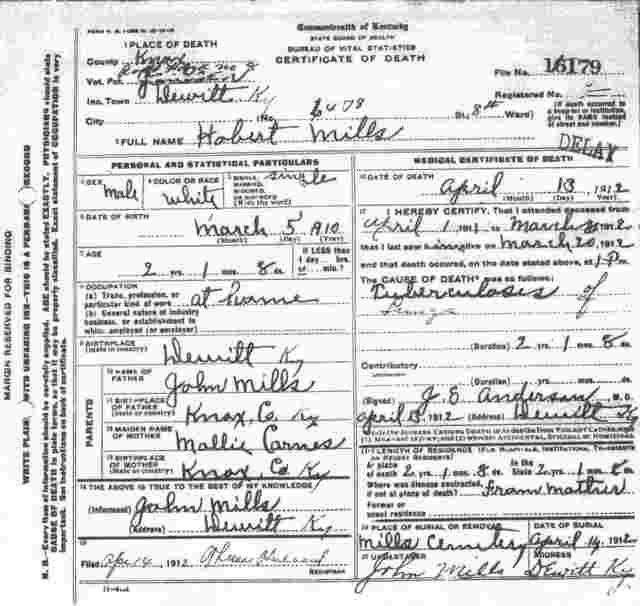 Commonwealth of Kentucky
STATE BOARD OF HEALTH
BUREAU OF VITAL STATISTICS
CERTIFICATE OF DEATH
1 PLACE OF DEATH
County Knox
File No. 16179
Vot. Pct.
Registered No.
Inc. Town Dewitt Ky
City (No. St., 8th Ward)
(If death occurred in a hospital or institution, give its NAME instead of street and number.)
2 FULL NAME Hobert Mills
DELAY
PERSONAL AND STATISTICAL PARTICULARS
3 SEX Male
4 COLOR OR RACE White
5 SINGLE, MARRIED, WIDOWED, OR DIVORCED (Write the word) single
6 DATE OF BIRTH
March 5 1910
(Month) (Day) (Year)
7 AGE
2 yrs. 1 mos. 8 ds.
If LESS than 1 day hrs. or min.?
8 OCCUPATION
(a) Trade, profession, or particular kind of work at home
(b) General nature of industry business, or establishment in which employed (or employer)
9 BIRTHPLACE
(State or country) Dewitt Ky
PARENTS
10 NAME OF FATHER John Mills
11 BIRTHPLACE OF FATHER (State or country) Knox Co Ky
12 MAIDEN NAME OF MOTHER Mallie Carnes
13 BIRTHPLACE OF MOTHER (State or country) Knox Co Ky
14 THE ABOVE IS TRUE TO THE BEST OF MY KNOWLEDGE
(Informant) John Mills
(Address) Dewitt Ky
15
Filed Apr 14, 1912
REGISTRAR
MEDICAL CERTIFICATE OF DEATH
16 DATE OF DEATH
April 13, 1912
(Month) (Day) (Year)
17 I HEREBY CERTIFY, That I attended deceased from
April 1 191 to March 20 1912
that I last saw h alive on March 20, 1912
and that death occurred, on the date stated above, at 1 P m.
The CAUSE OF DEATH* was as follows:
Tuberculosis of
Lungs
(Duration) 2 yrs. 1 mos. 8 ds.
Contributory
(Duration) yrs. mos. ds.
(Signed) J. E. Anderson M. D.
April 13, 1912 (Address) Dewitt Ky
18 LENGTH OF RESIDENCE (For Hospitals, Institutions, Transients or Recent Residents)
At place of death 2 yrs. 1 mos. 8 ds. In the State 2 yrs. 1 mos. 8 ds.
Where was disease contracted, if not at place of death? From mother
Former or usual residence
19 PLACE OF BURIAL OR REMOVAL
Mills Cemetery
DATE OF BURIAL
April 14, 1912
20 UNDERTAKER
John Mills
ADDRESS
Dewitt Ky
MARGIN RESERVED FOR BINDING
WRITE PLAINLY WITH UNFADING INK—THIS IS A PERMANENT RECORD
N. B.—Every item of information should be carefully supplied. AGE should be stated EXACTLY. PHYSICIANS should state
CAUSE OF DEATH in plain terms, so that it may be properly classified. Exact statement of OCCUPATION is very
important. See instructions on back of certificate.